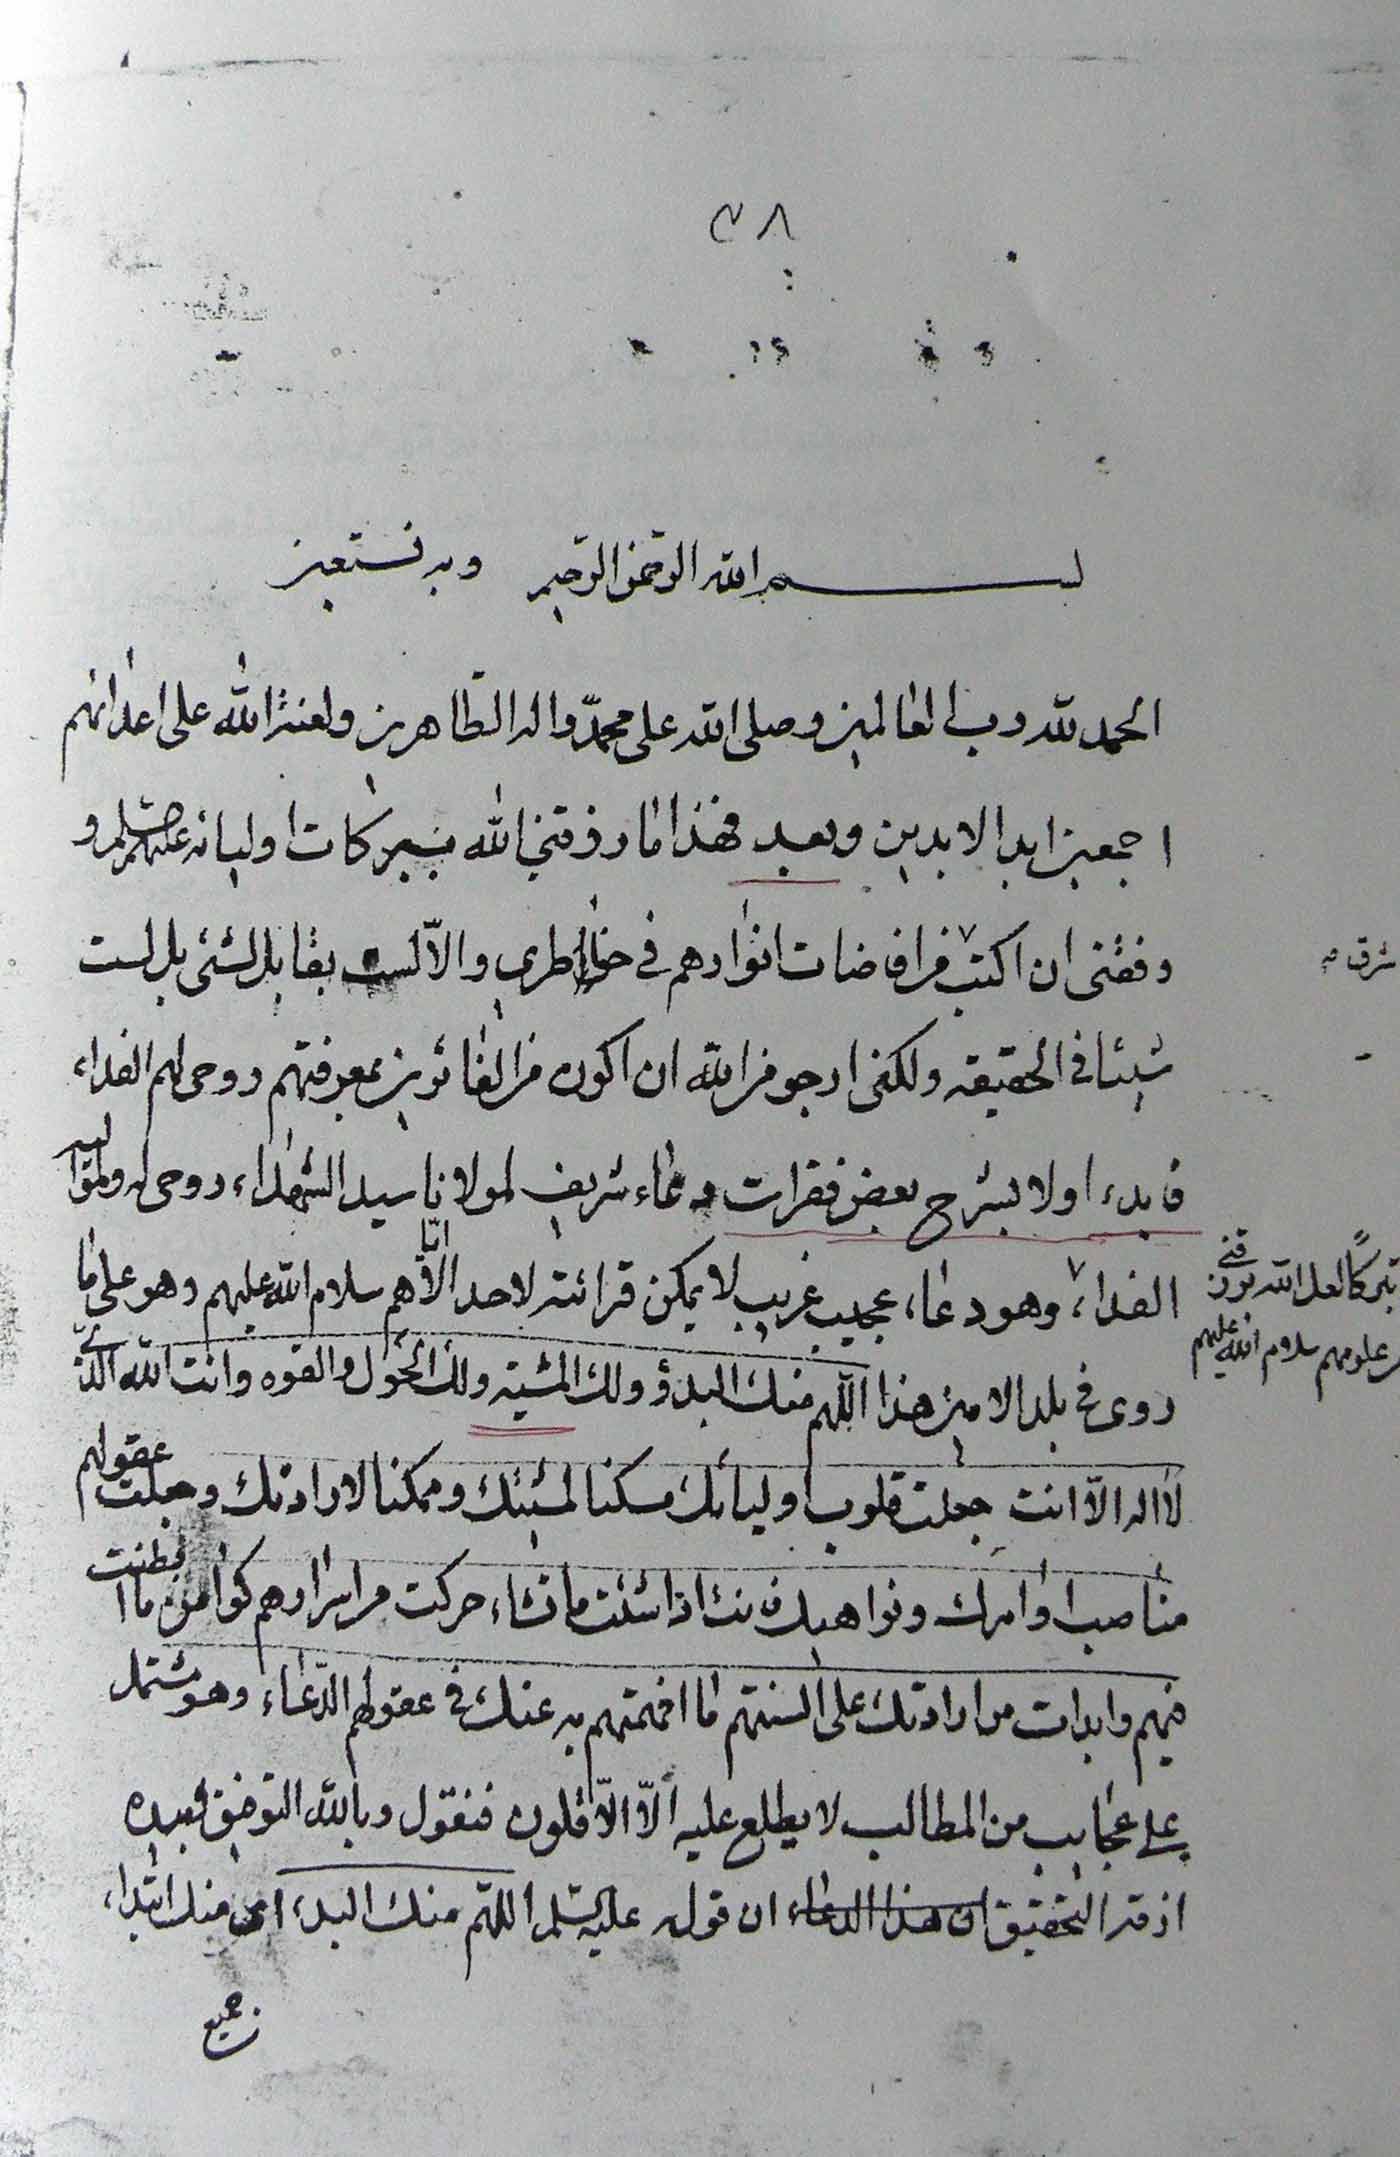 ٣٨
بسم الله الرحمن الرحيم وبه نستعين
الحمد لله رب العالمين وصلى الله على محمد واله الطاهرين ولعنة الله على اعدائهم
اجمعين ابد الابدين وبعد فهذا ما رزقني الله ببركات اوليائه عليهم و
وفقنى ان اكتب من افاضات انوارهم في خاطري والا لست بقابل لشئى بل لست
شيئا في الحقيقه ولكنى ارجو من الله ان اكون من الفائزين بمعرفتهم روحى لهم الفداء
فابدء اولا بشرح بعض فقرات دعاء شريف لمولانا سيد الشهداء روحى له ولمواليه
الفداء، وهو دعاء عجيب غريب لا يمكن قرائته لاحد الا اياهم سلام الله عليهم وهو على ما
تبركا لعل الله يرزقني
علومهم سلام الله عليهم
روى في بلد الامين هذا اللهم منك البدؤ ولك المشيته ولك الحول والقوه وانت الله الذى
لا اله الا انت جعلت قلوب اوليائك مسكنا لمشيتك وممكنا لارادتك وجعلت عقولهم
مناصب اوامرك ونواهيك فانك اذا شئت ما تشاء حركت من اسرارهم كوامن ما ابطنت
فيهم وابدات من ارادتك على السنتهم ما افهمتهم به عنك في عقولهم الدعاء وهو مشتمل
على عجايب من المطالب لا يطلع عليه الا الاقلون فنقول وبالله التوفيق وبيده
ازمة التحقيق ان هذا الدعاء ان قوله عليه السلام اللهم منك البدء اى منك ابتداء
جميع